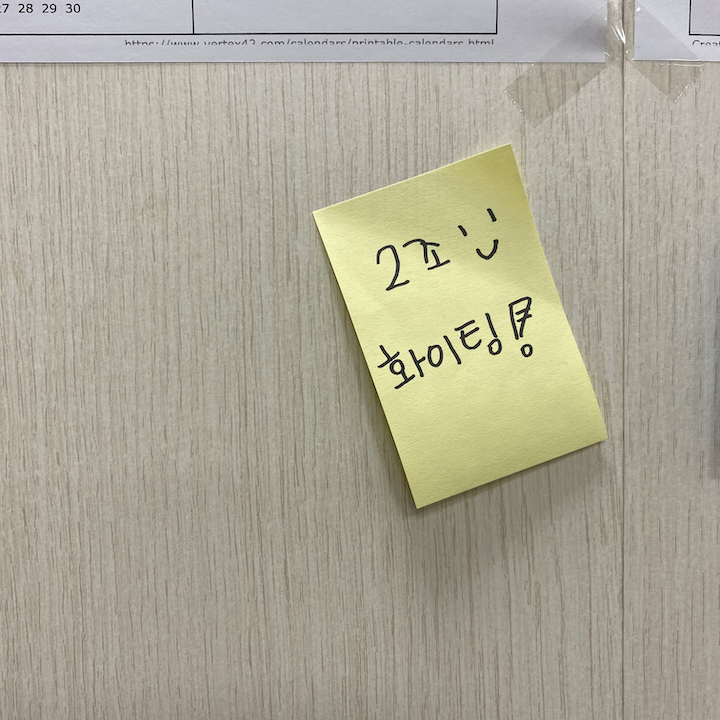 27 28 29 30
https://www.vertex42.com/calendars/printable-calendars.html
2조
화이팅!